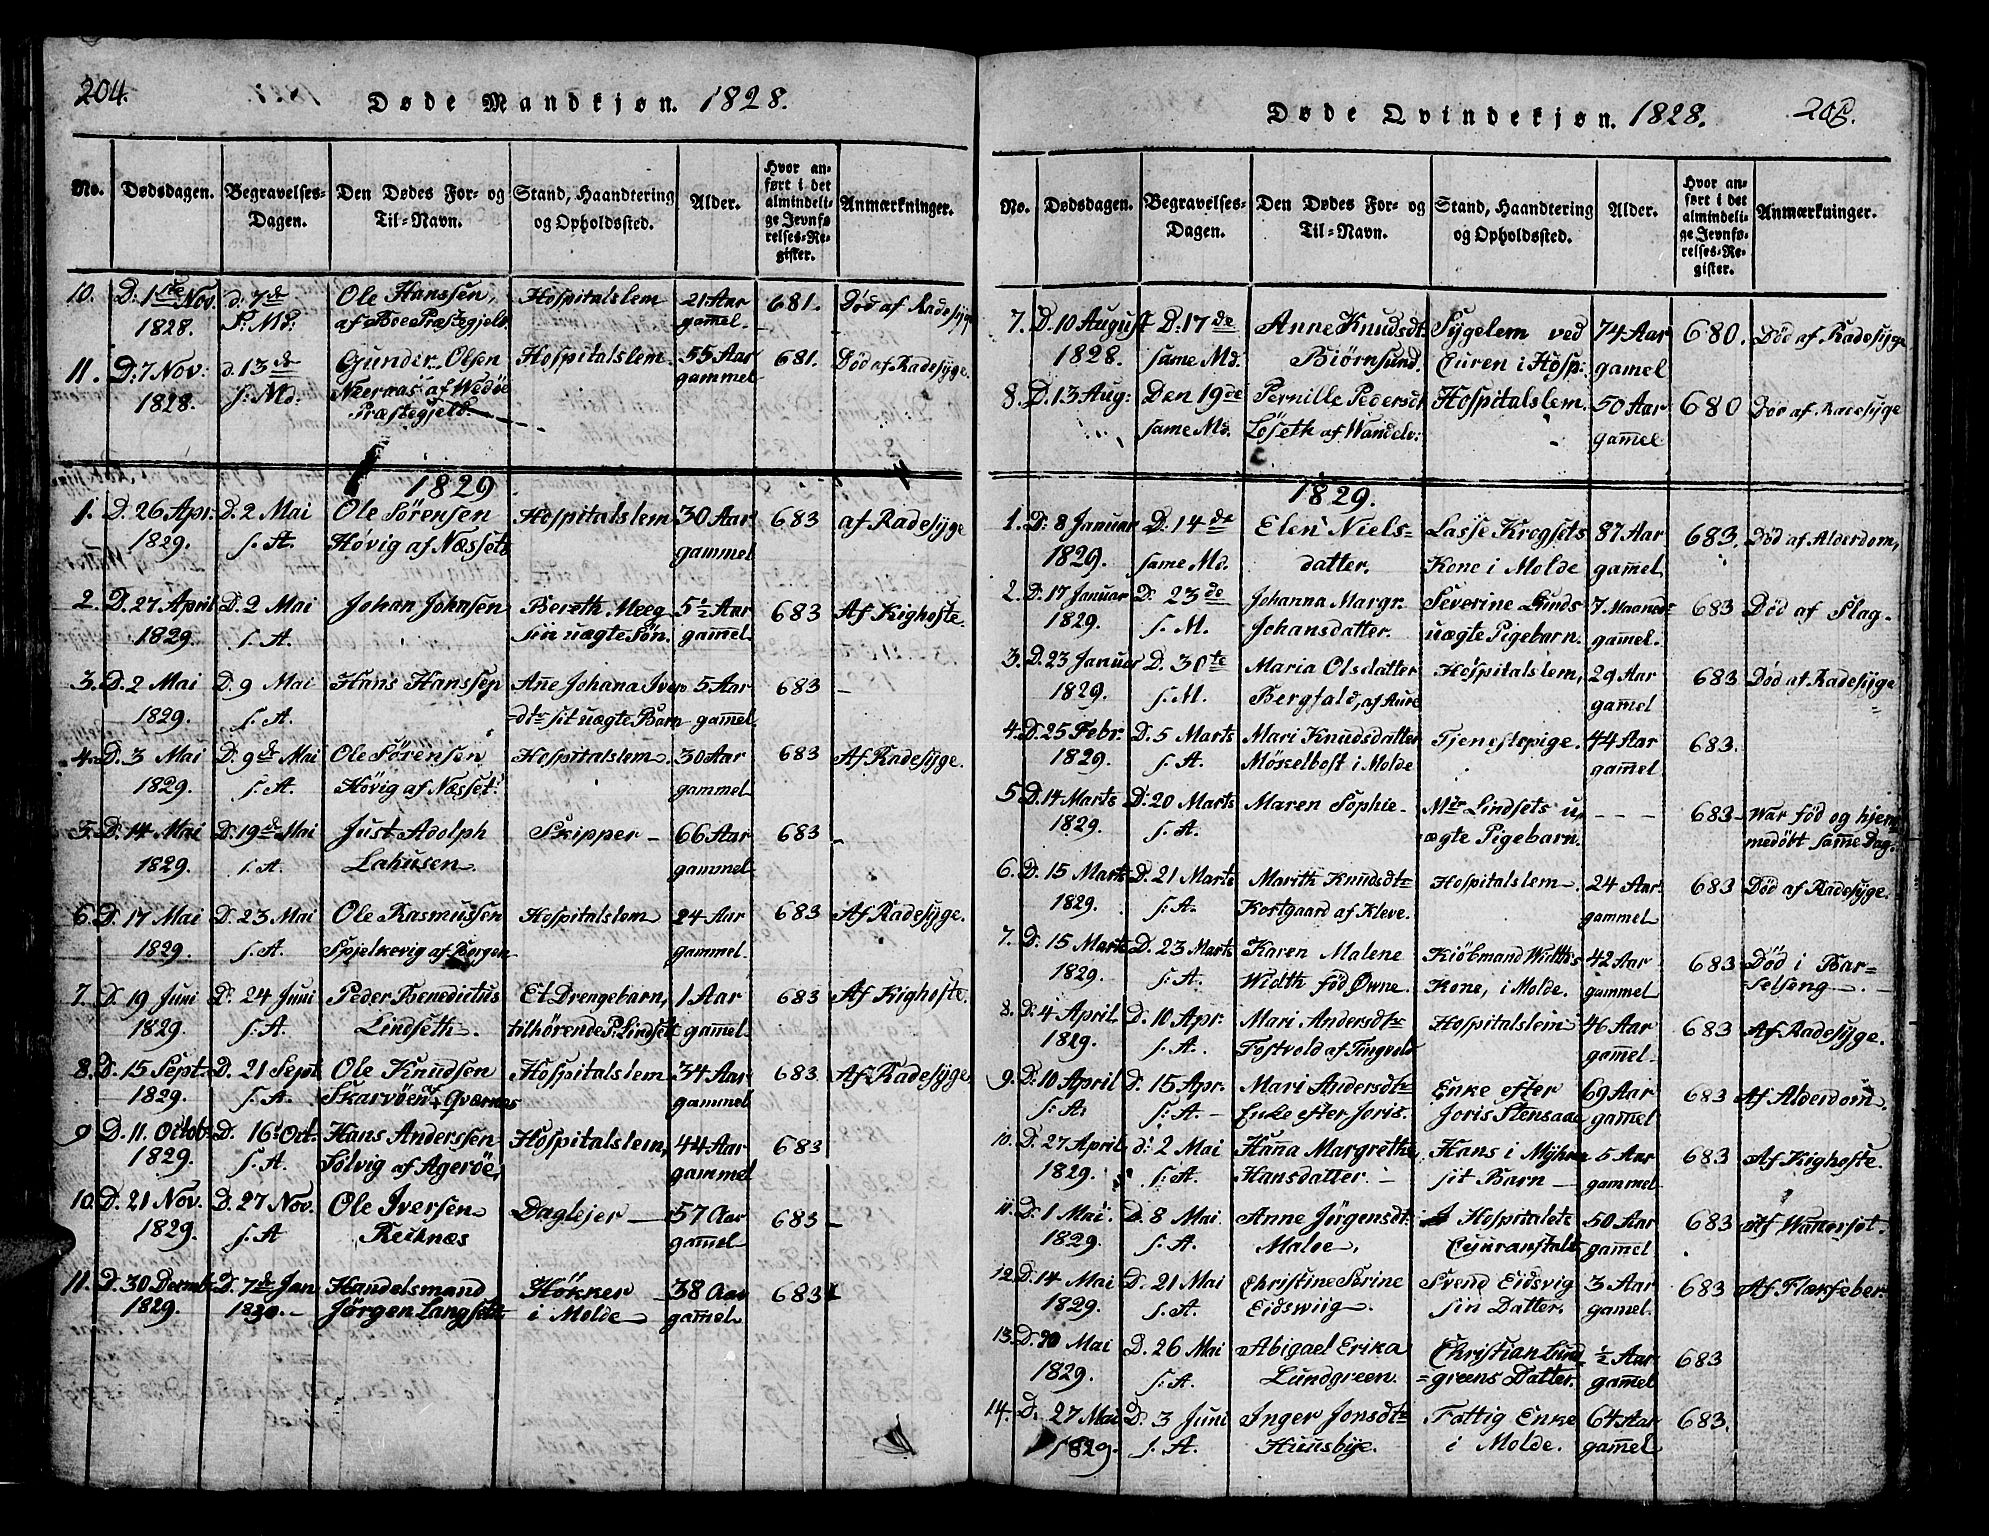 204.
Døde Mandkjøn. 1828.
No. Dødsdagen. Begravelses-Dagen. Den Dødes For- og Til-Navn. Stand, Haandtering og Opholdssted. Alder. Hvor anført i det almindelige Jevnførelses-Register. Anmærkninger.
10. D: 1ste Nov. d: 7de Ole Hanssen, Hospitalslem 21 Aar 681. Død af Radesyge
1828. s: Md: af Boe Præstegjeld. gamel
11. D: 7 Nov: d. 13de Gunder Olsen Hospitalslem 55 Aar 681. Død af Radesyge.
1828. s: Md: Neernas af Wedøe gammel
Præstegjeld
1829
1. D. 26 Apr. D. 2 Mai Ole Sørensen Hospitalslem 30 Aar 683 af Radesyge
1829. s. A. Høvig af Næssets gammel
2. D. 27 April D. 2 Mai Johan Johnsen Bereth Meeg 5½ Aar 683 Af Kighoste.
1829. s. A. sin uægte Søn. gamel
3. D. 2 Mai D. 9 Mai Hans Hanssen Ane Johana Ivers 5 Aar 683 —
1829. s. A. =dtr sit uægte Barn gamel
4. D. 3 Mai D. 9de Mai Ole Sørensen Hospitalslem 30 Aar 683 Af Radesyge.
1829. s. A. Høvig af Næsset: gammel
5. D. 14 Mai D. 19de Mai Just Adolph Skipper — 66 Aar 683 —
1829. s. A. Lahusen gammel
6. D. 17 Mai D. 23 Mai Ole Rasmussen Hospitalslem 24 Aar 683 Af Radesyge.
1829. s. A. Spjelkevig af Borgen gammel
7. D. 19 Juni D. 24 Juni Peder Benedictus Et Drengebarn, 1 Aar 683 Af Kighoste.
1829. s: A. Lindseth. tilhørende P. Lindset gamel
8. D. 15 Sept. D. 21 Sept. Ole Knudsen Hospitalslem 34 Aar 683 Af Radesyge,
1829. s. A. Skarvøen af Qvernes gammel
9 D. 11. Octob. D. 16 Oct. Hans Anderssen Hospitalslem, 44 Aar 683
1829. s. A. Solvig af Agerøe, gammel
10. D. 21 Nov. D. 27 Nov. Ole Iversen Daglejer — 57 Aar 683 —
1829. s. A Reiknæs gamel
11. D. 30 Decmb. D. 7de Jan Handelsmand Høkker 38 Aar 683
1829. 1830. — Jørgen Langset i Molde gamel
205.
Døde Qvindekjøn. 1828.
No. Dødsdagen. Begravelses-Dagen. Den Dødes For- og Til-Navn. Stand, Haandtering og Opholdssted. Alder. Hvor anført i det almindelige Jevnførelses-Register. Anmærkninger.
7. D. 10 August D. 17de Anne Knudsdt. Sygelem ved 74 Aar 680. Død af Radesyge
1828. same Md. Biørnsund. Curen i Hosp: gamel
8. D. 13 Aug: Den 19de Pernille Pedersdt Hospitalslem. 50 Aar 680 Død af Radesyge
same Md. Løseth af Wandelv: gamel
1829.
1. D: 8 Januar D: 14de Elen Niels= Lasse Krogsets 87 Aar 683. Død af Alderdom,
1829. same Md. datter. Kone i Molde gamel
2. D: 17 Januar D: 23de Johanna Margr. Severine Lunds 7 Maaneder 683 Død af Slag.
1829. s. M. Johansdatter. uægte Pigebarn. gamel.
3. D. 23 Januar D. 30te Maria Olsdatter Hospitalslem, 29 Aar 683 Død af Radesyge
1829. s. M. Bergfald, af Aure gamel
4. D. 25 Febr. D. 5 Marts Mari Knudsdatter Tjenestepige. 44 Aar 683.
1829. s. A. Möskelbost i Molde gamel
5 D. 14 Marts D: 20 Marts Maren Sophie — Mlr Lindsets u, — — — 683 — War fød og hjem
1829. s. A. =ægte Pigebarn. medøbt same Dag.
6. D. 15 Marts D. 21 Marts Marith Knudsdtr Hospitalslem 24 Aar 683 Død af Radesyge.
1829. s: A. Kortgaard af Kleve. gammel
7. D: 15 Marts D. 23 Marts Karen Malene Kiöbmand Widths 42 Aar 683 Død i Bar=
1829. s. A. Width fód Owne. Kone, i Molde. gammel selseng —
8. D: 4 April D. 10 Apr. Mari Andersdtr Hospitalslem 46 Aar 683 Af Radesyge.
1829. s. A. Fostvold af Tingvold gamel
9. D: 10 April D. 15 Apr. Mari Andersdtr Enke efter 69 Aar 683 Af Alderdom.
s: A. s: A. — Enke efter Joris. Joris Stensaae gamel
10. D: 27 April d: 2 Mai Hana Margrethe Hans i Myhren 5 Aar 683 Af Kighoste.
1829. s. A. Hansdatter. — sit Barn — gamel
11. D: 1 Mai. D. 8 Mai. Anne Jørgensdt. I Hospitalets 50 Aar 683 Af Wattersot.
1829. s. A. Maloe. Cuuranstalt gamel
12. D: 14 Mai D. 21 Mai Christine Sørine Svend Eidsvig 3 Aar 683 Af Flækfeber
1829. s. A. Eidswiig sin Datter. gamel.
13. D. 20 Mai D. 26 Mai Abigael Erika Christian Lund ½ Aar 683
1829. s: A. Lundgreen. =greens Datter. gamel
14. D. 27 Mai D. 3 Juni Inger Jonsdtr Fattig Enke 64 Aar 683.
1829. s. A. Huusbye. i Molde. gamel